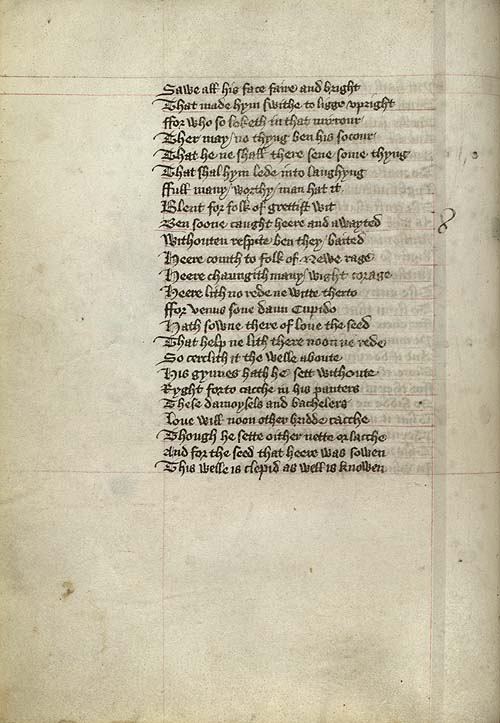 Sawe all his face faire and bright
That made hym swithe to ligge vpright
ffor who so loketh in that mirrour
Ther may / no thyng ben his socour
That he ne shall there sene some thyng
That shal hym lede into laughyng
ffull many / worthy / man hat it
Blent for folk of grettist wit
Ben soone caught heere and awayted
Withouten respite ben they / baited
Heere comth to folk of Newe rage
Heere chaungith many / wight corage
Heere lith no rede ne witte therto
ffor venus sone daun Cupido
Hath sowne there of loue the seed
That help ne lith there noon ne rede
So cerclith it the welle aboute
His gynnes hath he sett withoute
Ryght forto cacche in his panters
These damoysels and bachelers
Loue will noon other bridde cacche
Though he sette oither nette or lacche
And for the seed that heere was sowen
This welle is clepid as well is knowen